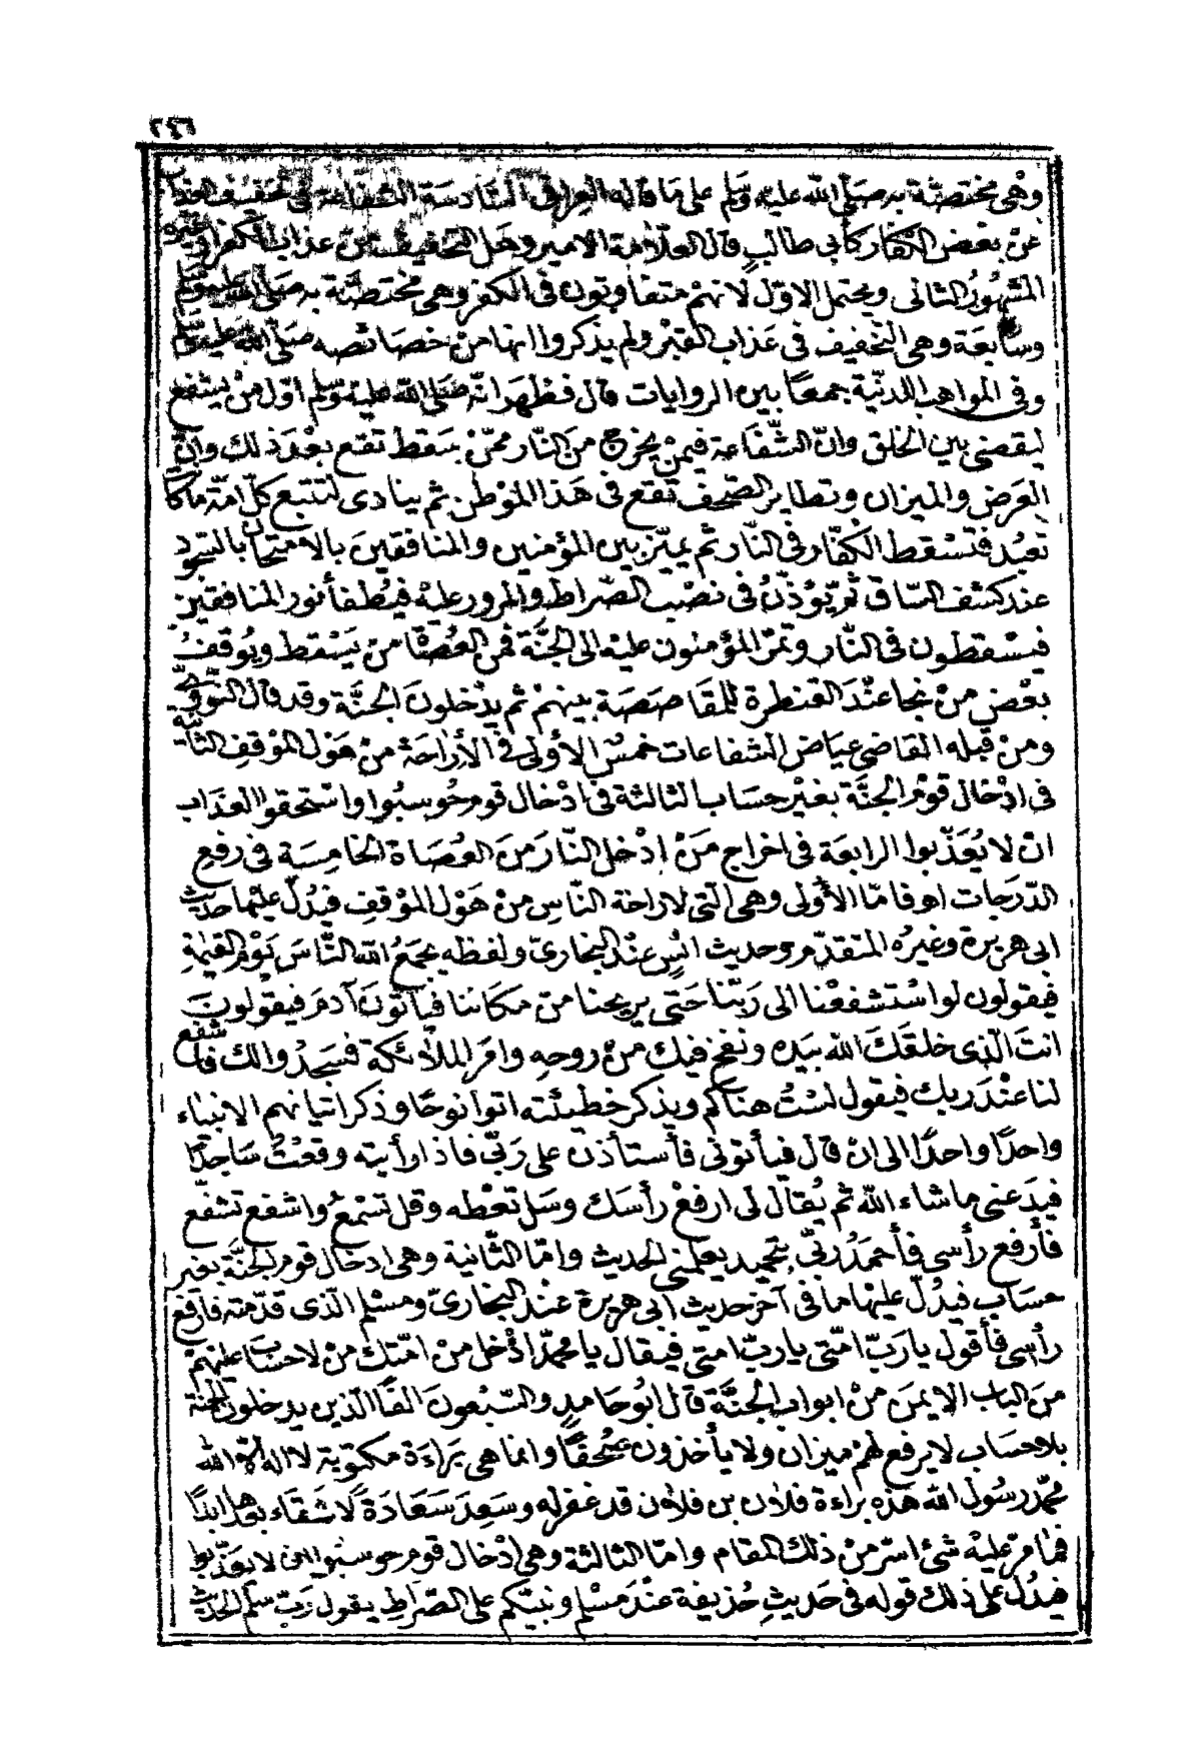 ٢٤٦
وهى مختصّة به صَلّى الله عليه وسَلم على مَا قاله العراقى السّادسَة الشفاعة فى تخفيف العذاب
عن بعض الكفار كأبى طالبٍ قال العلّامة الامير وهل التخفيف من عذاب الكفر او غيره
المشهورُ الثانى ويحتمل الاوّل لانهمْ متفاوتون فى الكفر وهى مختصّة به صلى الله عليه وسلم
وسابعة وهى التّخفيف فى عَذاب القبْر ولم يذكروا انها من خصائصه صَلّى الله عليه وسَلم
وفى المواهب اللدنيّة جمعًا بين الروايات قال فظهرَ انّه صَلى الله عليه وسّلم اوّل منْ يشفع
ليقضى بين الخلق وانّ الشّفاعة فيمنْ يخرج منَ النّار ممّنْ سَقط تقع بعْدَ ذلك وانّ
العَرض والميزان وتطاير الصّحف تقع فى هَذا الموْطن ثم ينادى لتتبع كلّ امّة ما كا
تعبُد فتسْقط الكفّار فى النّار ثم يميّز بين المؤمنين والمنافقينَ بالامتحان بالسّجود
عند كشف السّاق ثم يؤذنُ فى نصْب الصّراط والمرور عليْه فيُطفأ نور المنافقين
فيسْقطون فى النّار وتمرّ المؤمنون عليْه الى الجنَّة فمن العُصَاة منْ يَسْقط ويُوقفُ
بعْض منْ نجا عنْدَ القنطرة للمقاصَصَة بينهمْ ثم يدْخلونَ الجنَّة وقد قال النّووىّ
ومنْ قبْله القاضى عيَاض الشفاعات خمسٌ الأولى فى الأراحَة منْ هَوْل الموْقفِ الثانية
فى ادْخال قوْم الجنَّة بغيْر حسَاب الثالثة فى ادْخال قوم حُوسبُوا واستحقوا العذاب
انْ لا يُعَذّبوا الرابعَة فى اخراج مَنْ اِدْخل النّار منَ العُصَاة الخامِسَة فى رفعِ
الدّرجات اهـ فامّا الأولى وهى الّتى لاراحة النّاسِ منْ هَوْل الموْقفِ فيدُلّ عليْها حديث
ابى هريرة وغيرُه المتقدّم وحديث انسٍ عنْد البخارىّ ولفظه يجمَعُ الله النَّاسَ يَوْم القيٰمة
فيقولون لو اسْتشفعْنا الى رَبّنا حَتى يريحنا من مكاننا فيأتونَ آدمَ فيقولونَ
انتَ الّذى خلقَكَ الله بيَده ونفخ فيك منْ روحهِ وامَر الملائكة فسَجدُوا لك فاشفع
لنا عنْدَ ربك فيقول لسْتُ هناكم ويذكر خطيئته اتوا نوحًا وذكر اتيانهم الانبياء
واحدًا واحدًا الى انْ قال فيأتونى فأستأذن على رَبّى فاذا رأيته وقعْتُ سَاجدًا
فيدَعنى ما شاء الله ثم يُقال لى ارفعْ رأسَك وسَل تعْطه وقل تسْمعْ واشفع تشفّع
فأرفع رأسى فأحمَدُ ربّى بتحميد يعلمنى الحديث وامّا الثّانية وهى ادخال قوم الجنَّة بغير
حسَاب فيدُلّ عليْها ما فى آخر حديث ابى هريرة عنْد البخارىّ ومسْلم الّذى قدّمته فأرفع
رأسى فأقول يارَبّ امّتى ياربّ امتى فيقال يا محمّد ادْخل منْ امّتك منْ لا حسَاب عليْهمْ
منَ الباب الايمَن منْ ابواب الجنَّة قال ابُو حامدٍ والسّبْعونَ الفًا الذين يدخلون الجنّة
بلا حسَاب لا يرفع لهمْ ميزان ولا يأخذون صُحُفًا وانما هى بَراءَة مكتوبة لا اله الا الله
محمّد رسُول الله هَذه براءة فلان بن فلان قد غفر له وسَعِدَ سَعَادَةً لا شَقاء بعدها ابدًا
فما مَرّ عليْه شئ اسَرّ منْ ذلك المقام وامّا الثالثة وهى اِدْخال قوم حوسبُوا ان لا يعَذّبوا
فيدُلّ على ذلك قوله فى حَديثِ حُذيفة عنْدَ مسْلم ونبيّكم على الصّراطِ يقول رَبّ سَلم الحديث